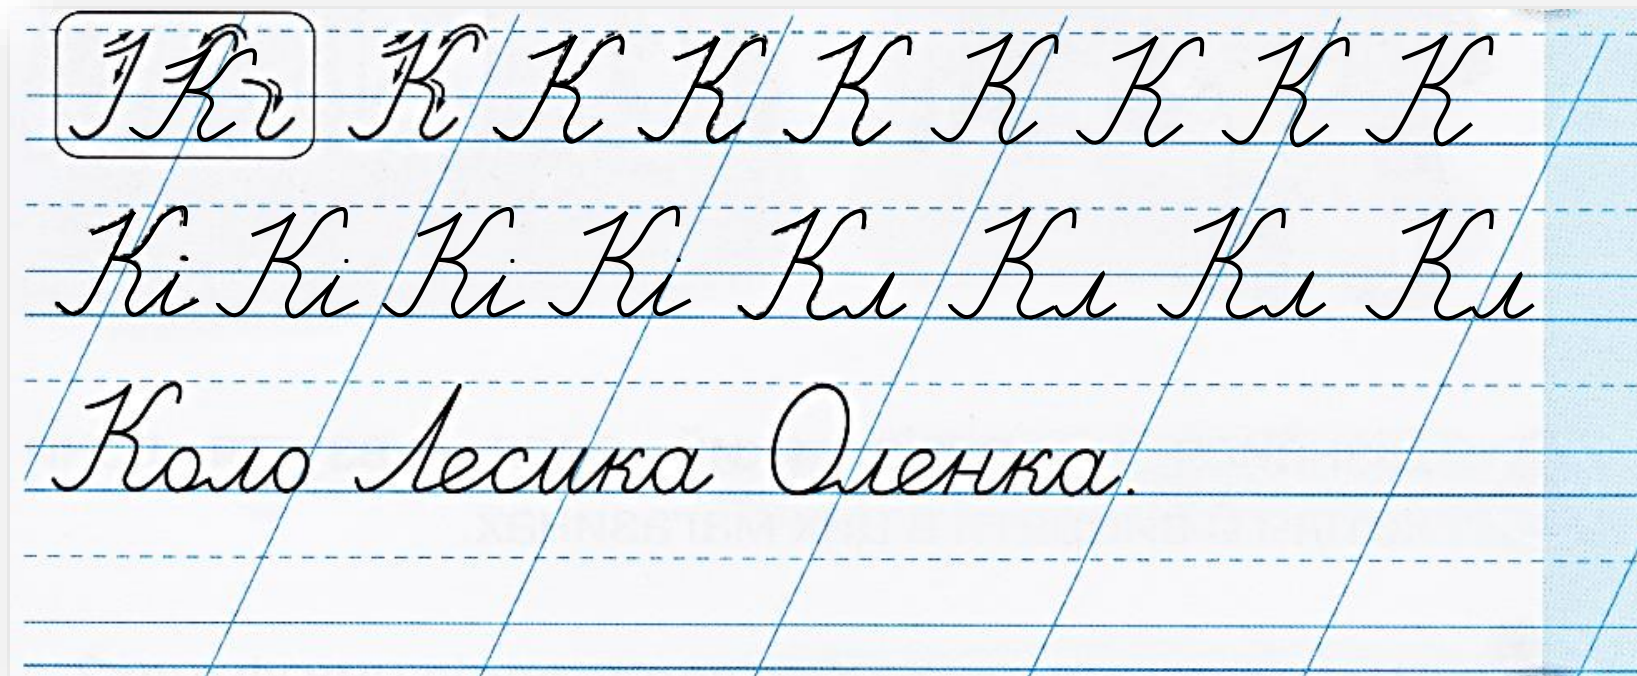 К К К К К К К К К К
Кі Кі Кі Кі Кл Кл Кл Кл
Коло Лесика Оленка.